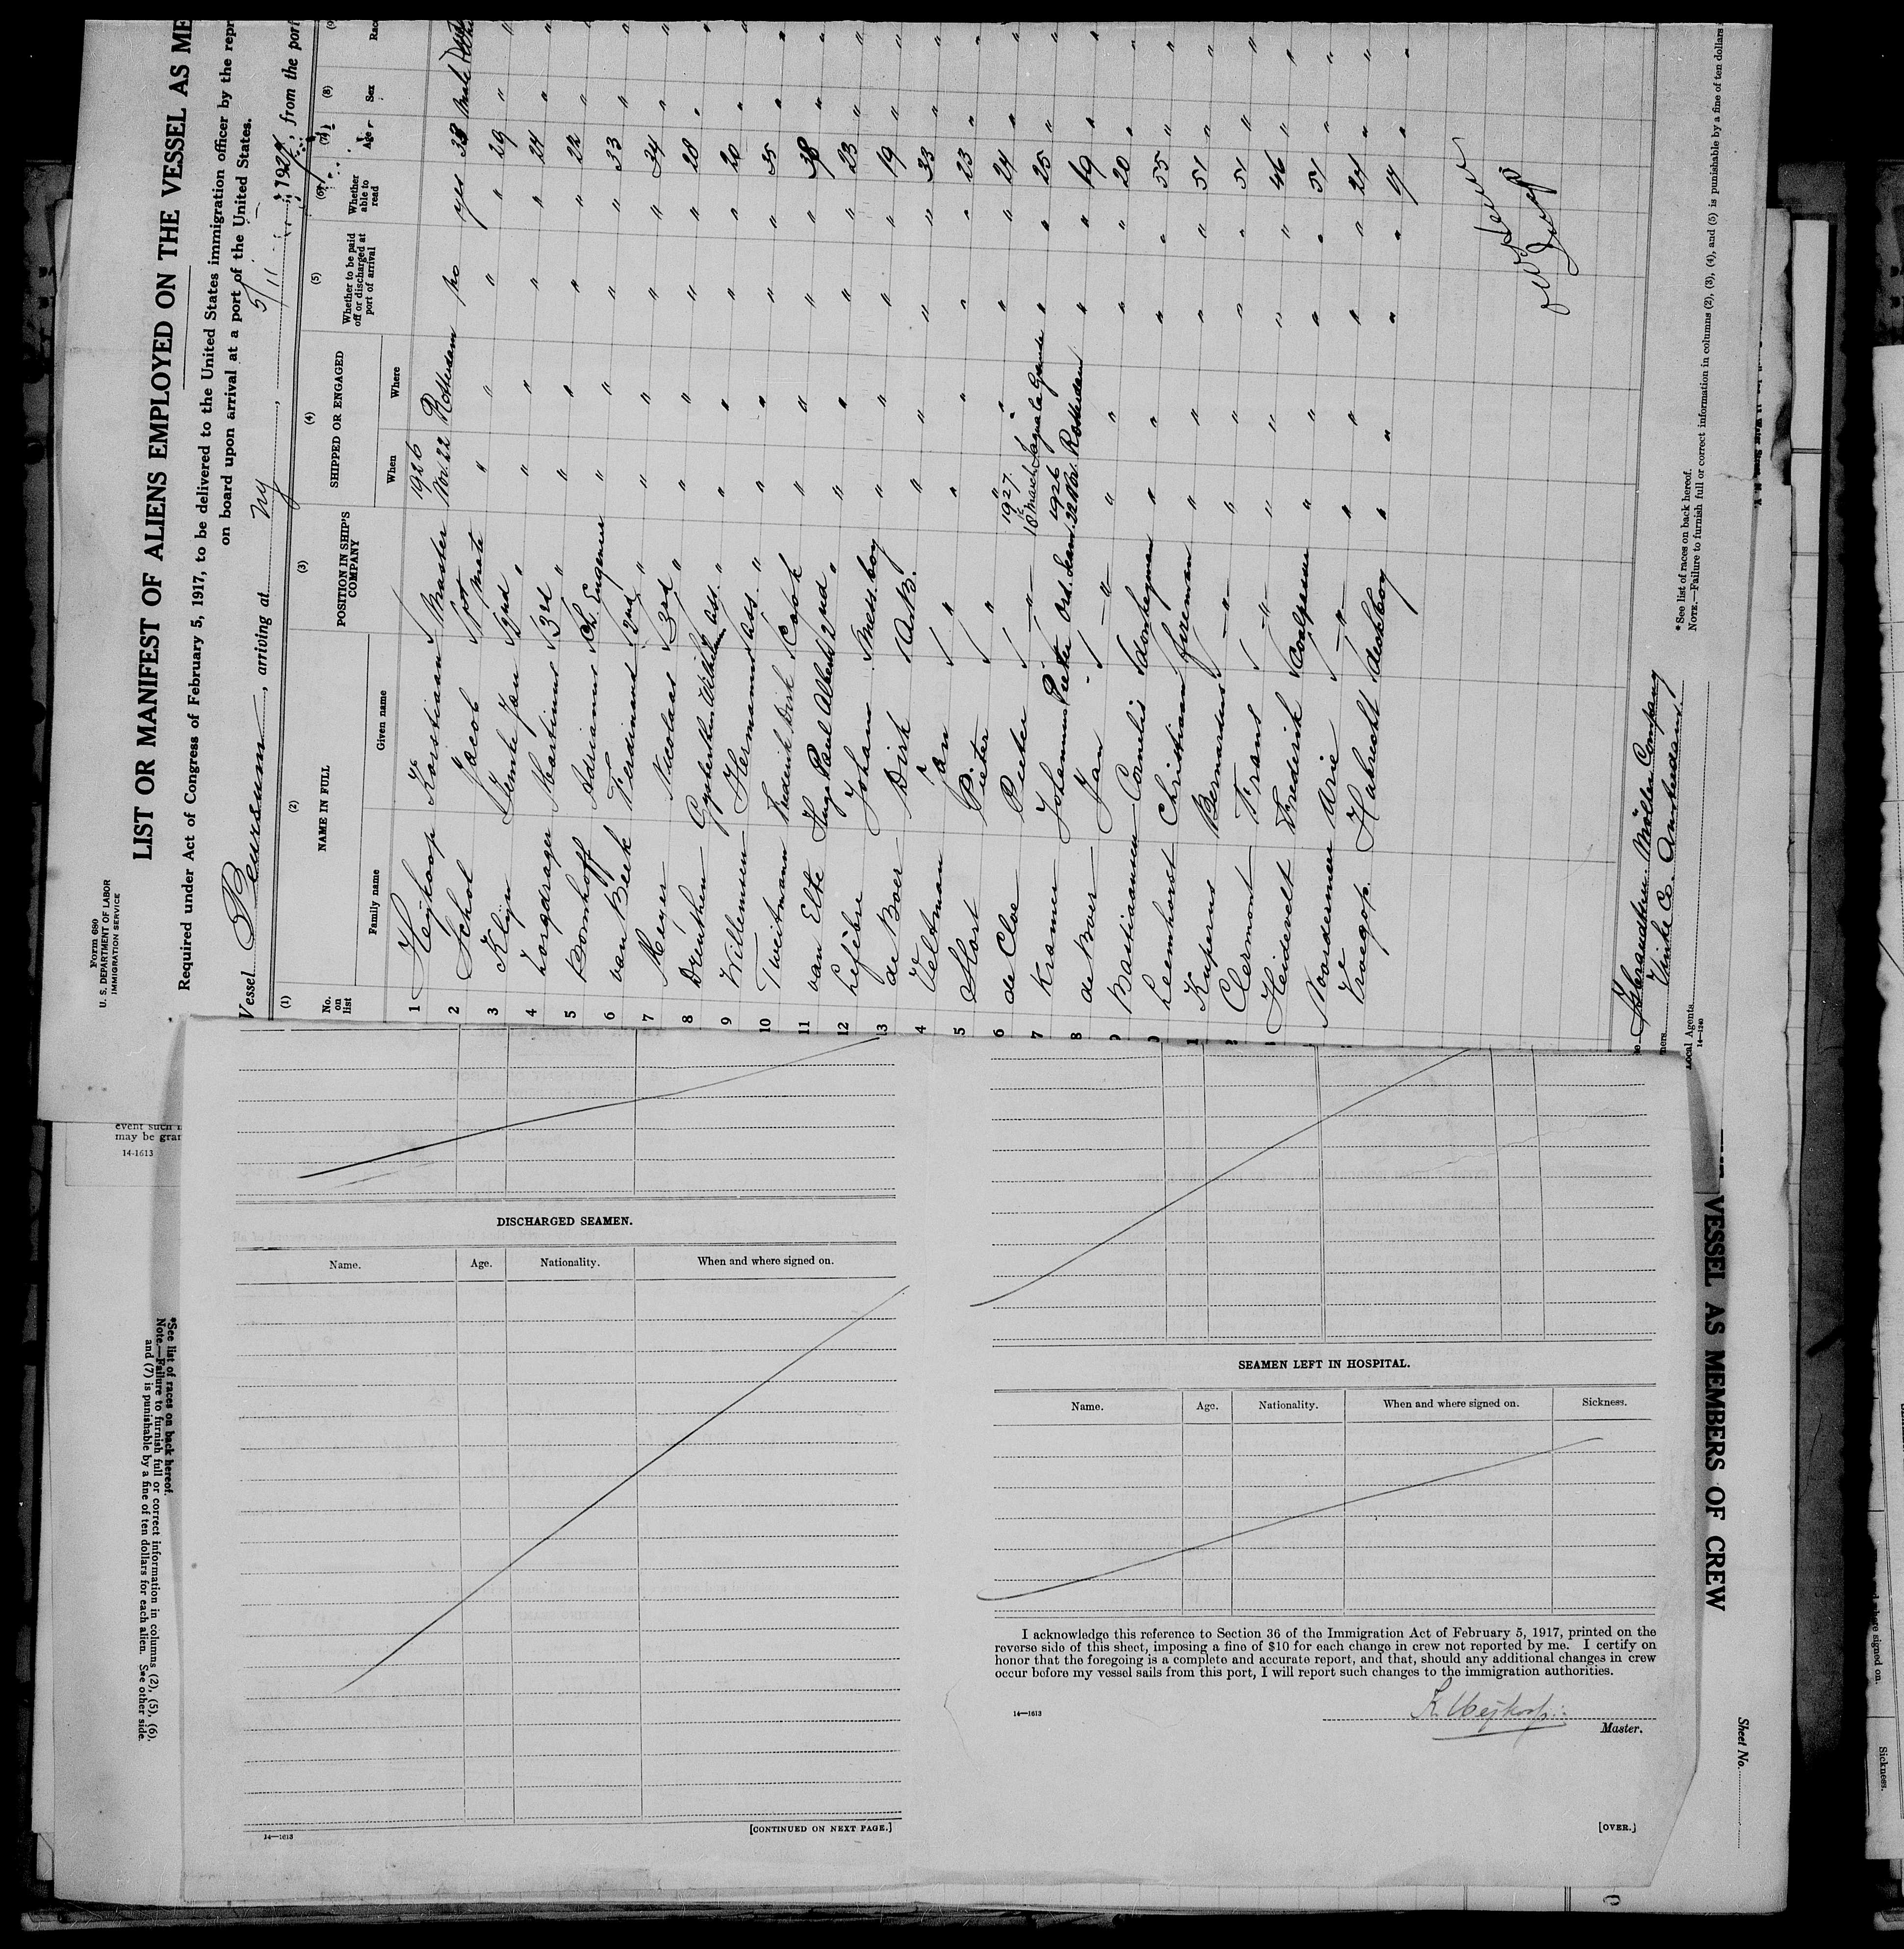 Form 680
U. S. DEPARTMENT OF LABOR
IMMIGRATION SERVICE
LIST OR MANIFEST OF ALIENS EMPLOYED ON THE VESSEL AS ME
Required under Act of Congress of February 5, 1917, to be delivered to the United States immigration officer by the repr
on board upon arrival at a port of the United States.
Vessel Beursum, arriving at NY, 5/11, 1927, from the port
(1) (2) (3) (4) (5) (6) (7) (8)
No. on list NAME IN FULL POSITION IN SHIP'S COMPANY SHIPPED OR ENGAGED Whether to be paid off or discharged at port of arrival Whether able to read Age Sex Rac
Family name Given name When Where
1926
1 Heykoop Korstiaan Master Nov. 22 Rotterdam no yes 38 Male
2 Schol Jacob 1st Mate " " " " 29 "
3 Klijn Jan 2nd " " " " " 24 "
4 Zorgdrager Martinus 3rd " " " " " 22 "
5 Bomhoff Adrianus Ch. Engeneer " " " " 33 "
6 van Beek Ferdinand 2nd " " " " " 34 "
7 Meyer Nicolaas 3rd " " " " " 28 "
8 Drenthen Wilhelm Ass. " " " " " 20 "
9 Willemsen Hermanus Ass. " " " " " 35 "
10 Tweitmann Frederik Dirk Cook " " " " 38 "
11 van Elte Hugo Paul Albert 2nd " " " " " 23 "
12 Lefèbre Johan Messboy " " " " 19 "
13 de Boer Dirk A.B. " " " " 33 "
4 Veltman Jan " " " " " 23 "
5 Stort Pieter " " " " " 24 "
1927
6 de Cloe Pieter " 18 March " " 25 "
1926
7 Kramer Johannes Pieter Ord. Seam. 22 Nov. Rotterdam " " 19 "
8 de Boer Jan " " " " " 20 "
9 Bastiaansen Cornelis donkeyman " " " " 55 "
0 Leemhorst Christiaan fireman " " " " 51 "
1 Kuperus Bernardus " " " " " 51 "
2 Clermont Frans " " " " " 46 "
Heidevelt Frederik Coalpasser " " " " 51 "
Noordermeer Arie " " " " " 24 "
Huibrecht deckboy " " " " 19 "
Möller Company
Vinke Co. Amsterdam
Local Agents
14—1240
*See list of races on back hereof.
NOTE.—Failure to furnish full or correct information in columns (2), (3), (4), and (5) is punishable by a fine of ten dollars
event such
may be gran
14-1613
DISCHARGED SEAMEN.
Name. Age. Nationality. When and where signed on.
14—1613
[CONTINUED ON NEXT PAGE.]
SEAMEN LEFT IN HOSPITAL.
Name. Age. Nationality. When and where signed on. Sickness.
I acknowledge this reference to Section 36 of the Immigration Act of February 5, 1917, printed on the
reverse side of this sheet, imposing a fine of $10 for each change in crew not reported by me. I certify on
honor that the foregoing is a complete and accurate report, and that, should any additional changes in crew
occur before my vessel sails from this port, I will report such changes to the immigration authorities.
K. Heijkoop
14—1613
Master.
[OVER.]
*See list of races on back hereof.
Note.—Failure to furnish full or correct information in columns (2), (5), (6),
and (7) is punishable by a fine of ten dollars for each alien. See other side.
VESSEL AS MEMBERS OF CREW
Sheet No.
signed on.
Sickness.